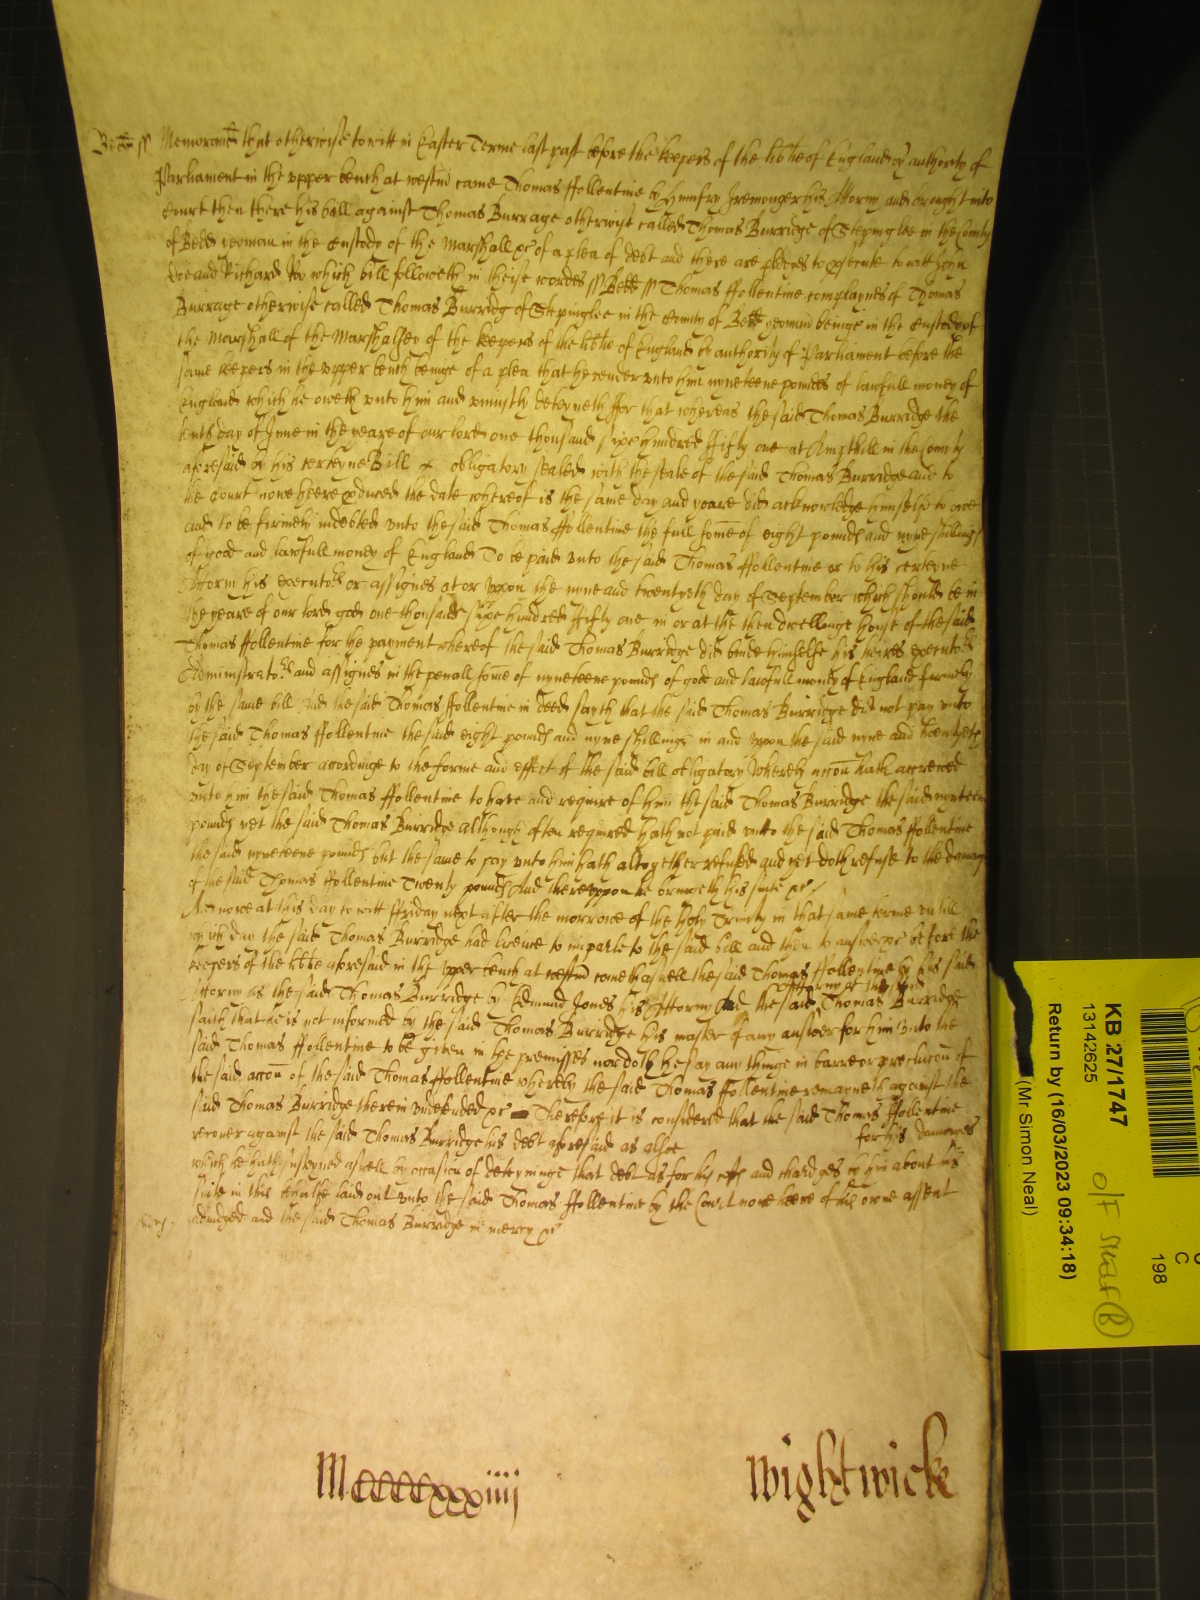 Bedd ss Memorand that otherwise to witt in Easter Terme last past before the keepers of the libtie of England by authority of
Parliament in the upper bench at westm came Thomas ffollentine by Humfry Iremonger his Attorny and brought into
Court then there his bill against Thomas Burrage otherwise called Thomas Burridge of Stepinglee in the County
of Bedd yeoman in the Custody of the Marshall &c of a plea of debt and there are pledges to psecute to witt John
Doe and Richard Roe which bill followeth in theise wordes ss Bedd ss Thomas ffollentine complaynes of Thomas
Burrage otherwise called Thomas Burridg of Stepinglee in the County of Bedd yeoman beinge in the Custody of
the Marshall of the Marshalsey of the keepers of the libtie of England by authority of Parliament before the
same keepers in the upper bench beinge of a plea that he render unto him nyneteene poundes of lawfull money of
England which he oweth unto him and uniustly deteyneth ffor that whereas the said Thomas Burridge the
tenth day of June in the yeare of our lord one thousand sixe hundred ffifty one at Ampthill in the County
aforesaid by his certeyne Bill obligatory sealed with the seale of the said Thomas Burridge and to
the Court nowe heere pduced the date whereof is the same day and yeare did acknowledge himselfe to owe
and to be firmely indebted unto the said Thomas ffollentine the full some of eight pounds and nyne shillings
of good and lawfull money of England To be paid unto the said Thomas ffollentine or to his certeyne
Attorny his executors or assignes at or uppon the nyne and twentyth day of September which should be in
the yeare of our lord god one thousand sixe hundred ffifty one in or at the then dwellinge house of the said
Thomas ffollentine for the payment whereof the said Thomas Burridge did binde himselfe his heires executors
Administrators and assignes in the penall some of nyneteene pounds of good and lawfull money of England firmely
by the same bill And the said Thomas ffollentine in deed sayth that the said Thomas Burridge did not pay unto
the said Thomas ffollentine the said eight pounds and nyne shillings in and uppon the said nyne and twentyeth
day of September accordinge to the forme and effect of the said bill obligatory Whereby accon hath accrewed
unto him the said Thomas ffollentine to have and require of him the said Thomas Burridge the said nyneteene
pounds yet the said Thomas Burridge although often required hath not paid unto the said Thomas ffollentine
the said nyneteene pounds but the same to pay unto him hath altogether refused and yet doth refuse to the damage
of the said Thomas ffollentine Twenty pounds And thereuppon he bringeth his suite &c
And nowe at this day to witt ffriday next after the morrowe of the holy Trinity in that same terme untill
wch day the said Thomas Burridge had licence to imparle to the said bill and then to answere &c before the
keepers of the libtie aforesaid in the upper bench at westm cometh aswell the said Thomas ffollentine by his said
Attorny as the said Thomas Burridge by Edmund Jones his Attorny And the said Attorny of the said Thomas Burridge
saith that he is not informed by the said Thomas Burridge his master of any answer for him unto the
said Thomas ffollentine to be given in the premisses nor doth he say any thinge in barre or preclucon of
the said accon of the said Thomas ffollentine whereby the said Thomas ffollentine remayneth against the
said Thomas Burridge therein undefended &c Therefore it is considered that the said Thomas ffollentine
recover against the said Thomas Burridge his debt aforesaid as alsoe for his damages
which he hath susteyned aswell by occasion of deteyninge that debt as for his costs and chardges by him about his
suite in this behalfe laid out unto the said Thomas ffollentine by the Court nowe heere of his owne assent
adiudged and the said Thomas Burridge in mercy &c
Mccccxxxiiij
Wightwick
KB 27/1747
13142625
Return by (16/03/2023 09:34:18)
(Mr Simon Neal)
C
198